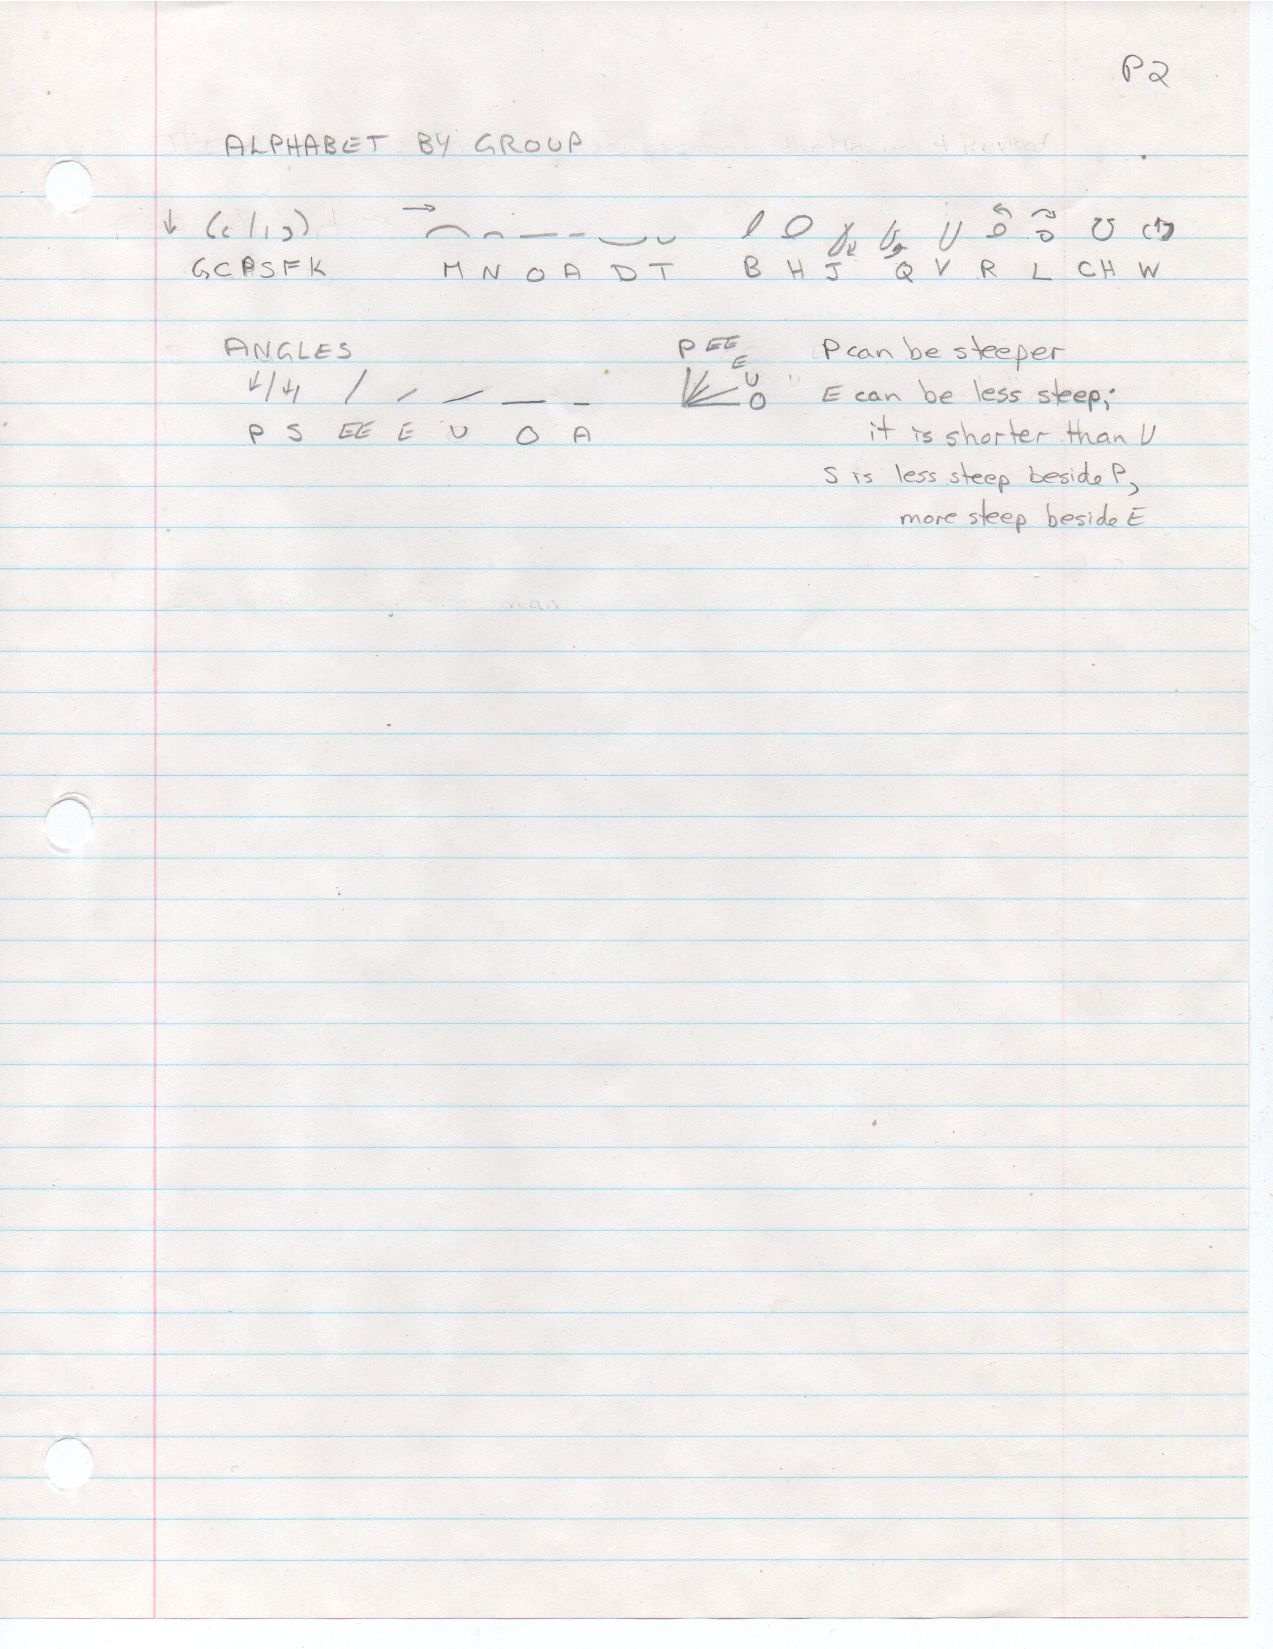 P2
ALPHABET BY GROUP
G C P S F K M N O A D T B H J Q V R L CH W
ANGLES P EE E U O P can be steeper
E can be less steep;
P S EE E U O A it is shorter than U
S is less steep beside P,
more steep beside E